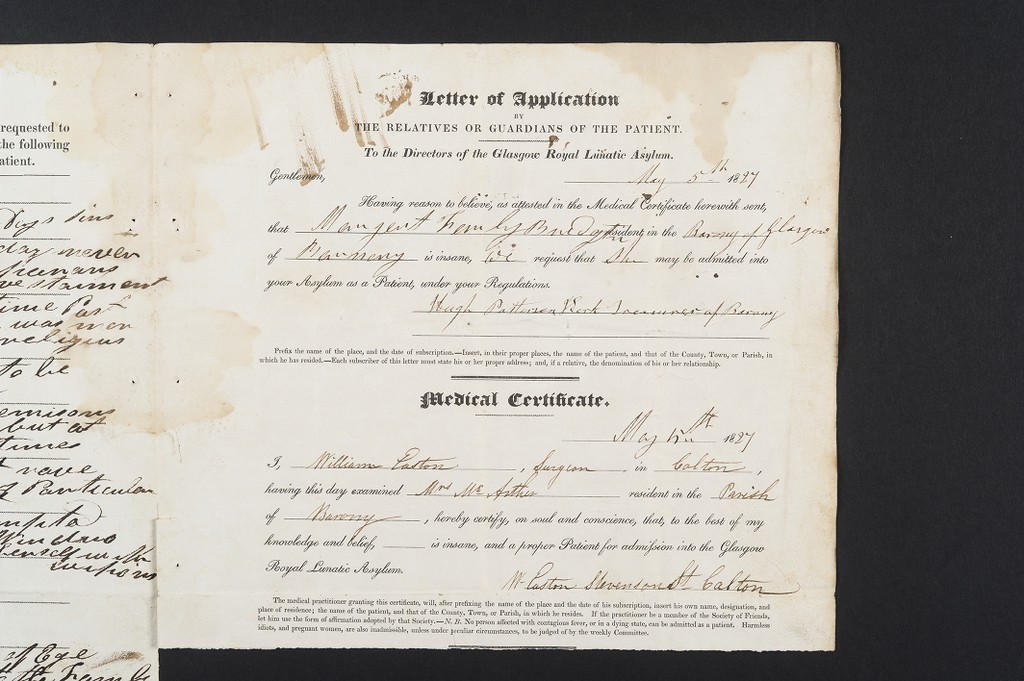 requested to
the following
atient.
Days sins
day never
time Past
was never
religius
to be
but at
times
rave
of Particular
Window
of Ege
Letter of Application
BY
THE RELATIVES OR GUARDIANS OF THE PATIENT.
To the Directors of the Glasgow Royal Lunatic Asylum.
May 5th 1827
Gentlemen,
Having reason to believe, as attested in the Medical Certificate herewith sent,
that Margaret Bridgton resident in the Barony of Glasgow
of is insane, We request that She may be admitted into
your Asylum as a Patient, under your Regulations.
Hugh Patterson Treasurer of Barony
Prefix the name of the place, and the date of subscription.—Insert, in their proper places, the name of the patient, and that of the County, Town, or Parish, in
which he has resided.—Each subscriber of this letter must state his or her proper address; and, if a relative, the denomination of his or her relationship.
Medical Certificate.
May 1827
I, William Easton, Surgeon in Calton,
having this day examined Mrs Mc Arther resident in the Parish
of Barony, hereby certify, on soul and conscience, that, to the best of my
knowledge and belief, is insane, and a proper Patient for admission into the Glasgow
Royal Lunatic Asylum.
W Easton Stevenson St Calton
The medical practitioner granting this certificate, will, after prefixing the name of the place and the date of his subscription, insert his own name, designation, and
place of residence; the name of the patient, and that of the County, Town, or Parish, in which he resides. If the practitioner be a member of the Society of Friends,
let him use the form of affirmation adopted by that Society.—N. B. No person affected with contagious fever, or in a dying state, can be admitted as a patient. Harmless
idiots, and pregnant women, are also inadmissible, unless under peculiar circumstances, to be judged of by the weekly Committee.